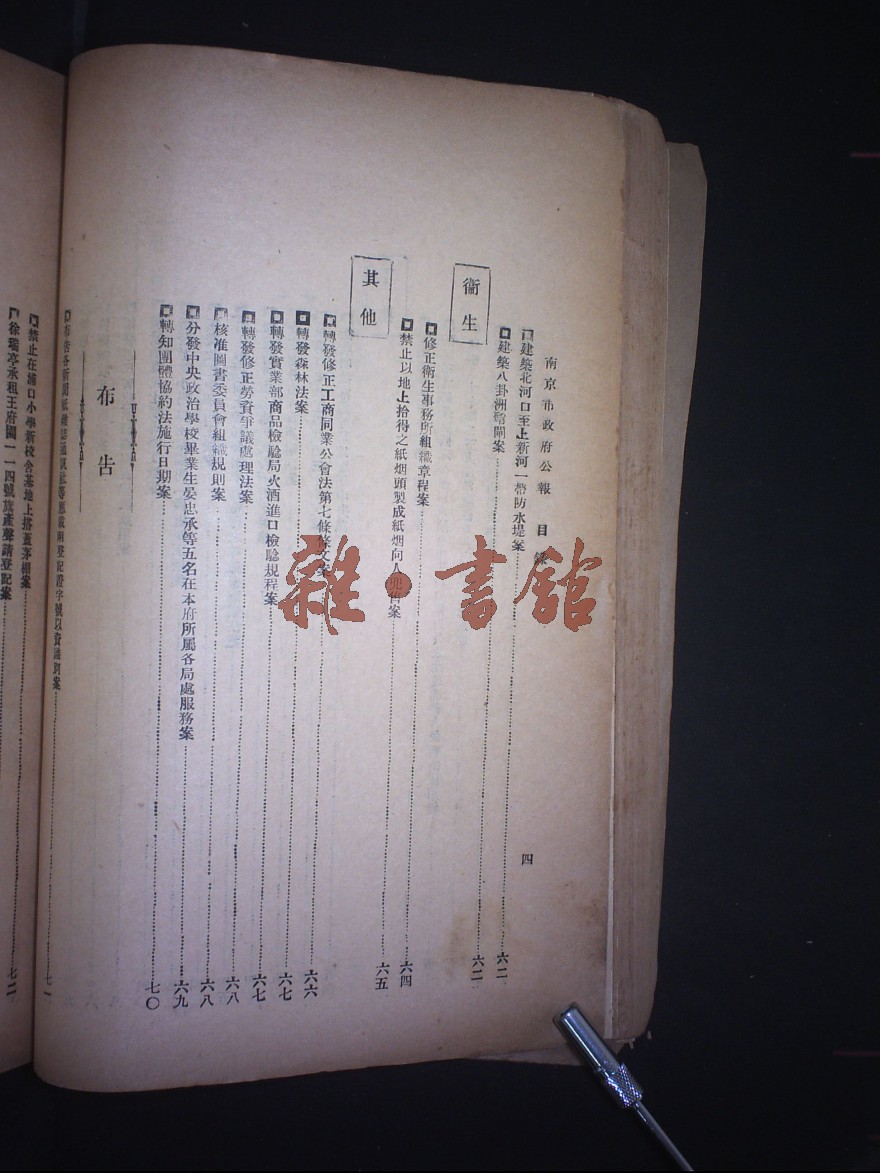 南京市政府公報 目錄 四
建築北河口至上新河一帶防水堤案 六二
建築八卦洲 閘案 六二
衞生
修正衛生事務所組織章程案 六四
禁止以地上拾得之紙烟頭製成紙烟向人兜售案 六五
其他
轉發修正工商同業公會法第七條條文案 六六
轉發森林法案 六七
轉發實業部商品檢驗局火酒進口檢驗規程案 六七
轉發修正勞資爭議處理法案 六八
核准圖書委員會組織規則案 六八
分發中央政治學校畢業生晏忠承等五名在本府所屬各局處服務案 六九
轉知團體協約法施行日期案 七〇
布告
布告各新聞紙雜誌通訊社等應載明登記證字號以資識別案 七一
禁止在浦口小學新校舍基地上搭蓋茅棚案 七二
徐瑞亭承租王府園一一四號旗產聲請登記案
雜·書館